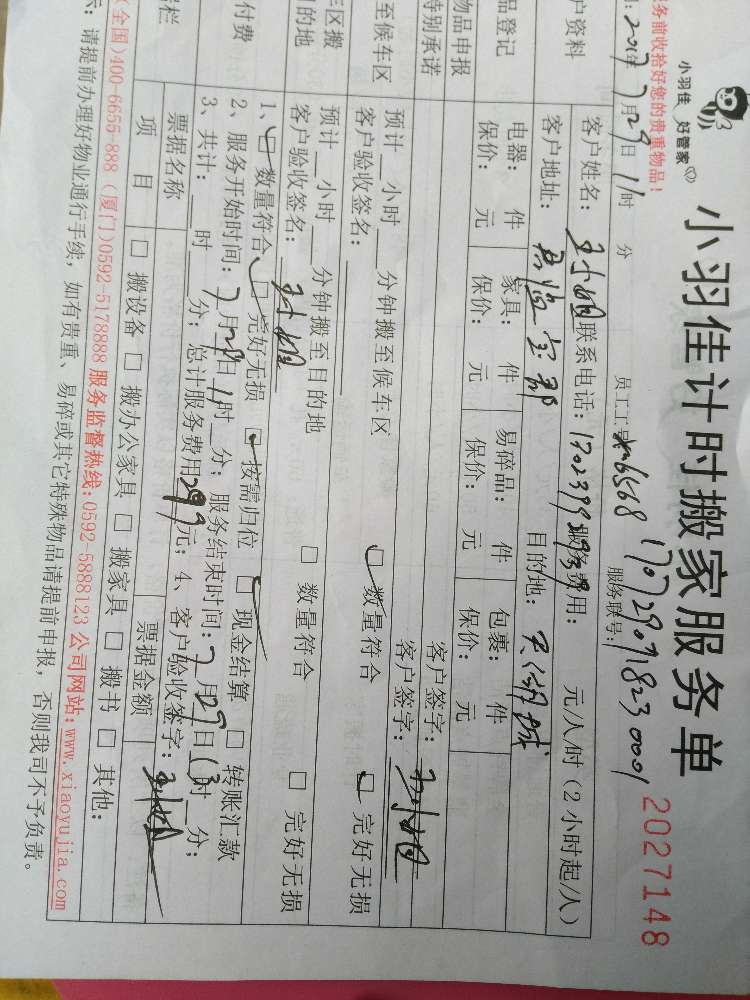 小羽佳 好管家
小羽佳计时搬家服务单
2027148
务前收拾好您的贵重物品！
2017年7月29日11时 分 员工工号 xm6568 服务联号：
户资料 客户姓名： 联系电话： 服务费用： 元/人/时（2小时起/人）
客户地址： 目的地：
品登记 电器： 件 家具： 件 易碎品： 件 包裹： 件
保价： 元 保价： 元 保价： 元 保价： 元
物品申报
特别承诺 客户签字：
至候车区 预计__小时__分钟搬至候车区 □ 数量符合 □ 完好无损
客户验收签名： 客户签字：
车区搬 预计__小时__分钟搬至目的地 □ 数量符合 □ 完好无损
目的地 客户验收签名：
付费 1、□ 数量符合 □ 完好无损 □ 按需归位 □ 现金结算 □ 转账汇款
2、服务开始时间：7月29日11时__分；服务结束时间：7月29日13时__分；
3、共计：__时__分；总计服务费用299元；4、客户验收签字：
票据名称 票据金额
项 目 □ 搬设备 □ 搬办公家具 □ 搬家具 □ 搬书 □ 其他：
(全国)400-6655-888 (厦门)0592-5178888 服务监督热线：0592-5888123 公司网站：www.xiaoyujia.com
示：请提前办理好物业通行手续，如有贵重、易碎或其它特殊物品请提前申报，否则我司不予负责。